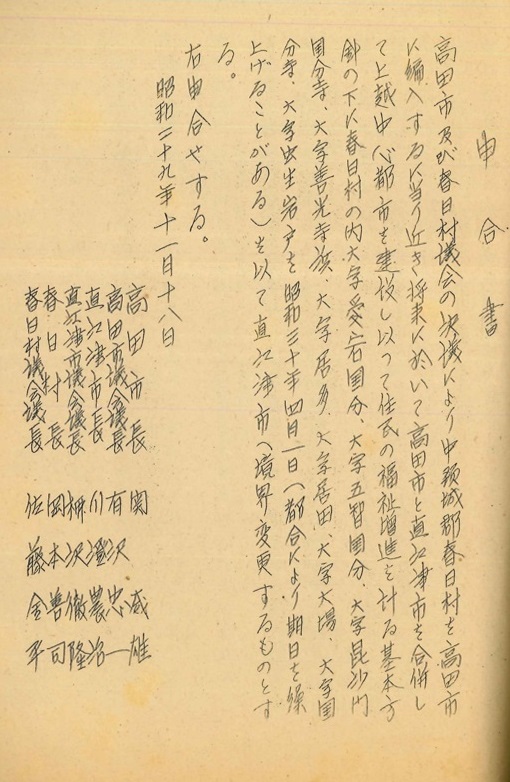 申合書
高田市及び春日村議会の決議により中頸城郡春日村を高田市
に編入するに当り近き将来に於いて高田市と直江津市を合併し
て上越中心都市を建設し以つて住民の福祉増進を計る基本方
針の下に春日村の内大字愛宕国分、大字五智国分、大字毘沙門
国分寺、大字善光寺浜、大字居多、大字居田、大字大場、大字国
分寺、大字虫生岩戸を昭和三十年四月一日(都合により期日を繰
上げることがある)を以て直江津市へ境界変更するものとす
る。
右申合せする。
昭和二十九年十一月十八日
高田市長 関 威雄
高田市議会議長 有次忠一
直江津市長 川澄農治
直江津市議会議長 柳次徹隆
春日村長 岡本善司
春日村議会議長 佐藤金平